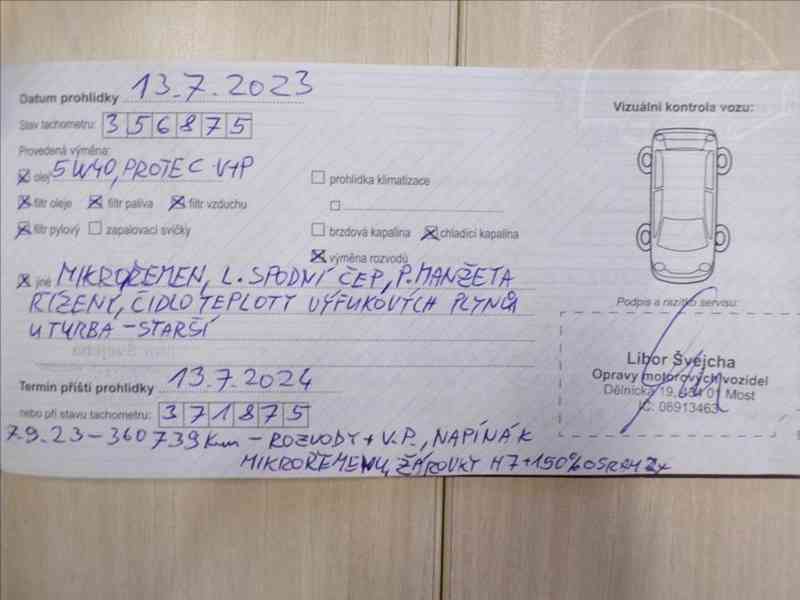 Datum prohlídky 13.7.2023
Stav tachometru: 356875
Provedená výměna:
olej 5W40, PROTEC V+P
filtr oleje filtr paliva filtr vzduchu
filtr pylový zapalovací svíčky
prohlídka klimatizace
brzdová kapalina chladící kapalina
výměna rozvodů
jiné MIKROŘEMEN, L. SPODNÍ ČEP, P. MANŽETA
ŘÍZENÍ, ČIDLO TEPLOTY VÝFUKOVÝCH PLYNŮ
U TURBA - STARŠÍ
Termín příští prohlídky 13.7.2024
nebo při stavu tachometru: 371875
7.9.23 - 360739 Km - ROZVODY + V.P., NAPÍNÁK
MIKROŘEMENU, ŽÁROVKY H7 +150% OSRAM 2x
Vizuální kontrola vozu:
Podpis a razítko servisu:
Libor Švejcha
Opravy motorových vozidel
Dělnická 19, 434 01 Most
IČ: 06913463